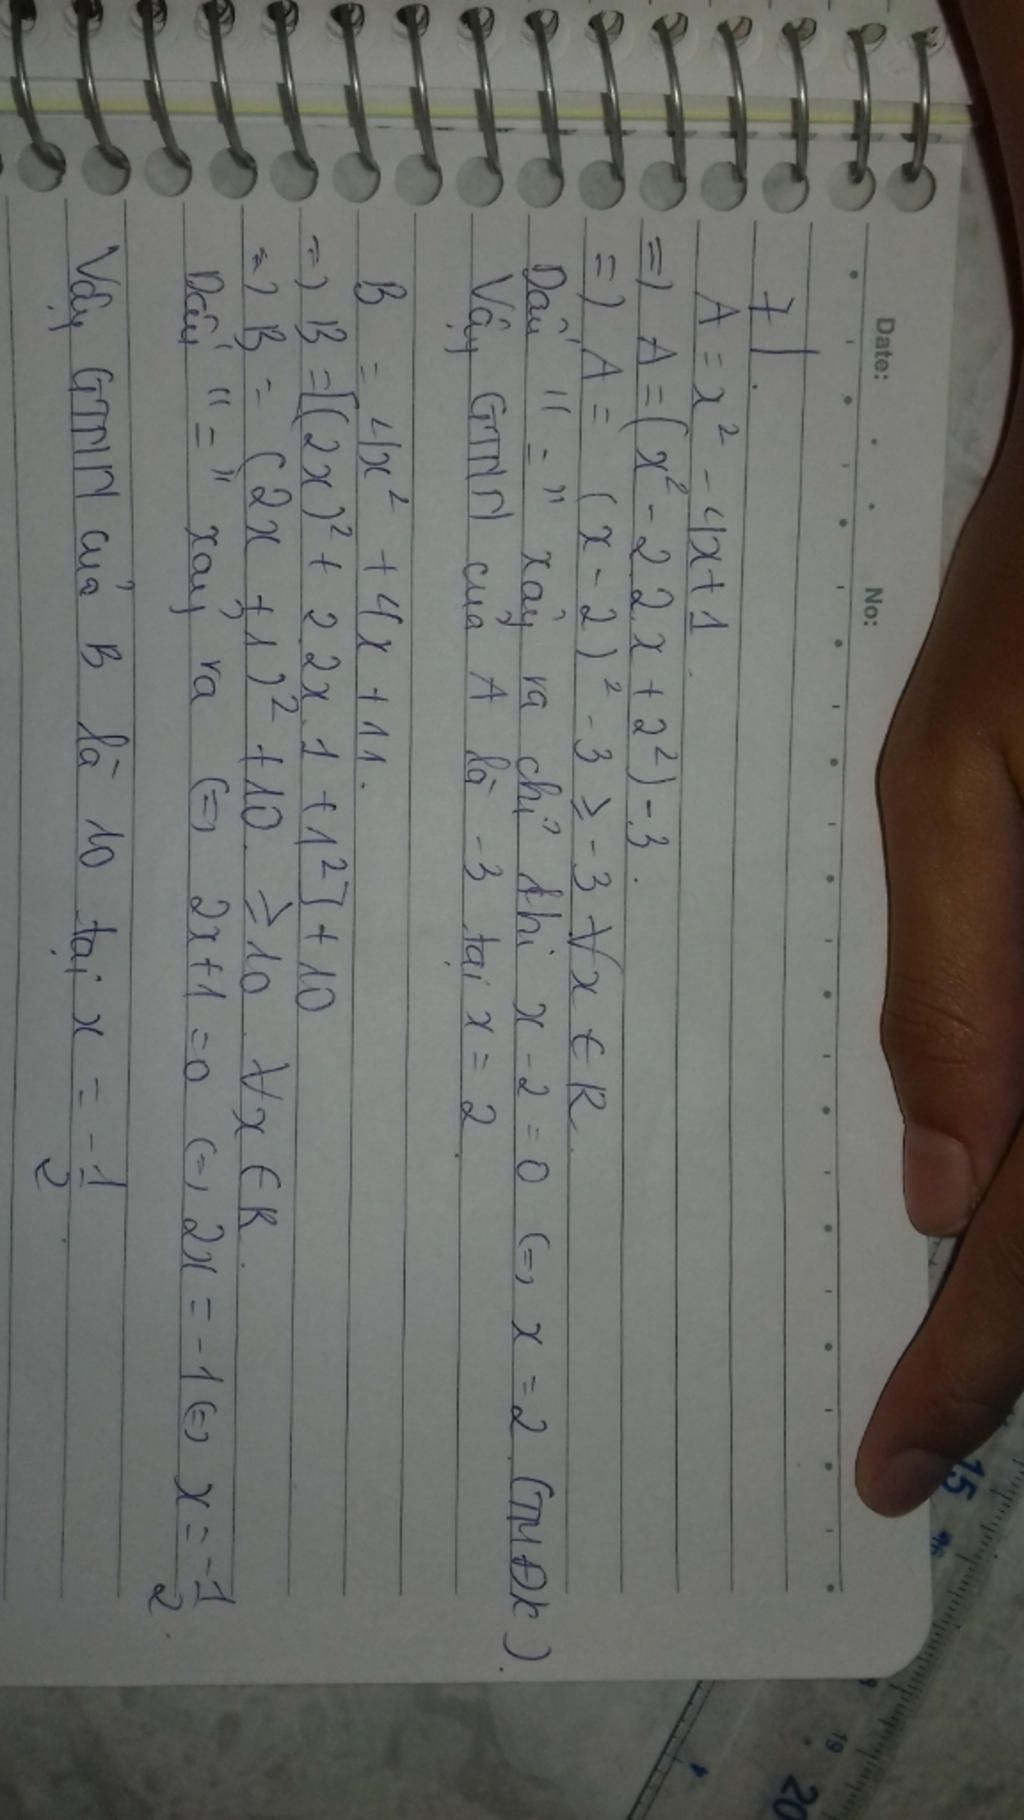 Date: No:
7).
A = x² - 4x + 1.
=) A = (x² - 2.2.x + 2²) - 3.
=) A = (x - 2)² - 3 ≥ -3 ∀x ∈ R.
Dấu "=" xảy ra chỉ khi x - 2 = 0 (=) x = 2 (TMĐK).
Vậy GTNN của A là -3 tại x = 2.
B = 4x² + 4x + 11.
=) B = [(2x)² + 2.2x.1 + 1²] + 10
=) B = (2x + 1)² + 10 ≥ 10 ∀x ∈ R.
Dấu "=" xảy ra (=) 2x + 1 = 0 (=) 2x = -1 (=) x = -1/2.
Vậy GTNN của B là 10 tại x = -1/2.
15
16
19
20
4